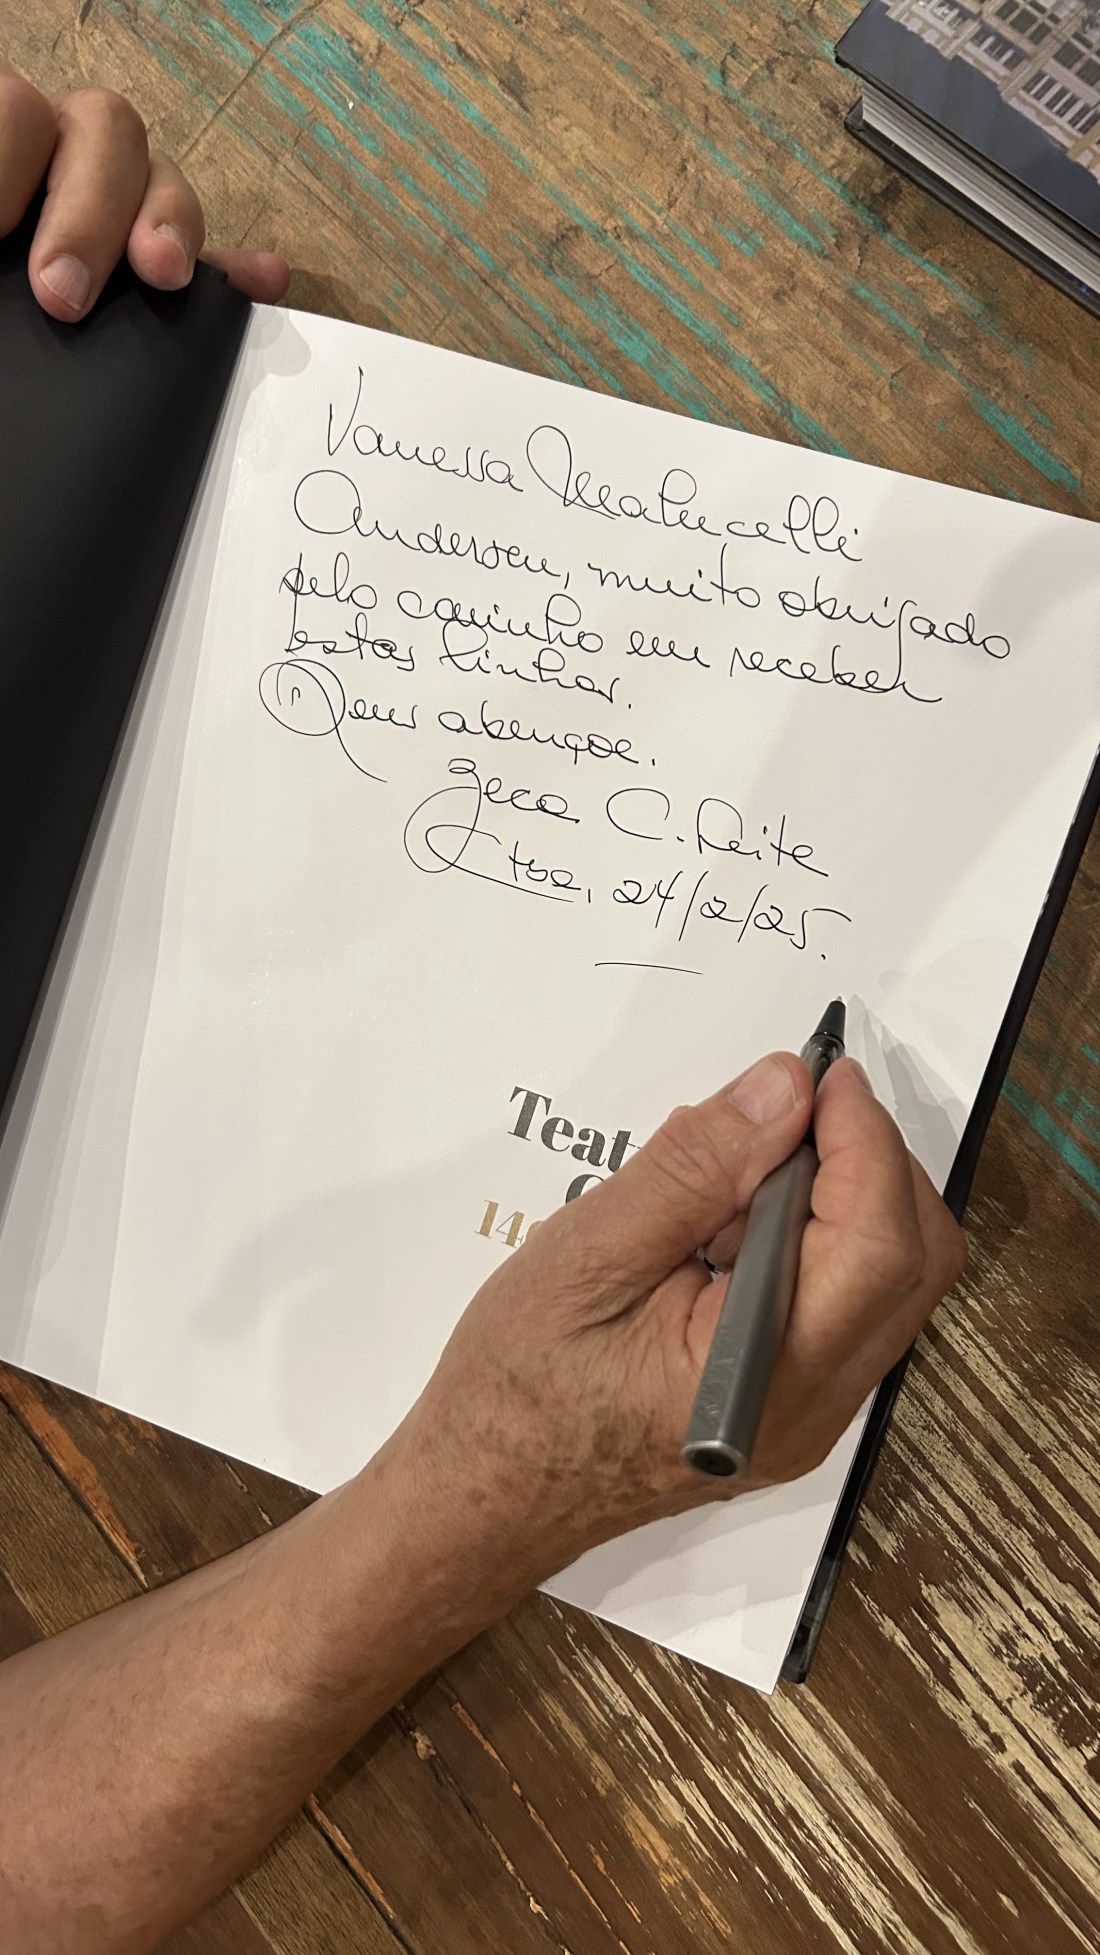 Vanessa Malucelli
Andersen, muito obrigado
pelo carinho em receber
estas linhas.
Deus abençoe.
Zeca C. Leite
Ctba, 24/2/25.
Teat
14